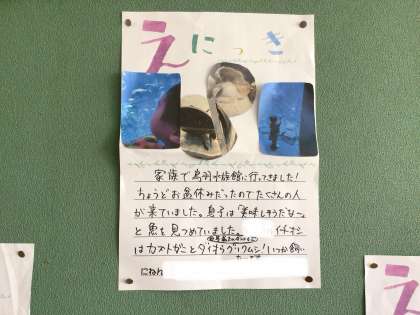 えにっき
家族で鳥羽水族館に行ってきました！
ちょうどお盆休みだったのでたくさんの人
が来ていました。息子は「美味しそうだな〜」
と魚を見つめていました。 イチオシ
はカブトガニとダイオウグソクムシ！いつか飼い
にねん